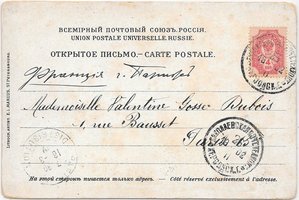 ВСЕМІРНЫЙ ПОЧТОВЫЙ СОЮЗЪ. РОССІЯ.
UNION POSTALE UNIVERSELLE. RUSSIE.
ОТКРЫТОЕ ПИСЬМО.—CARTE POSTALE.
Франція г. Парижъ
Mademoiselle Valentine Gosse-Dubois
1, rue Bausset
Paris
На этой сторонѣ пишется только адресъ. — Côté réservé exclusivement à l'adresse.